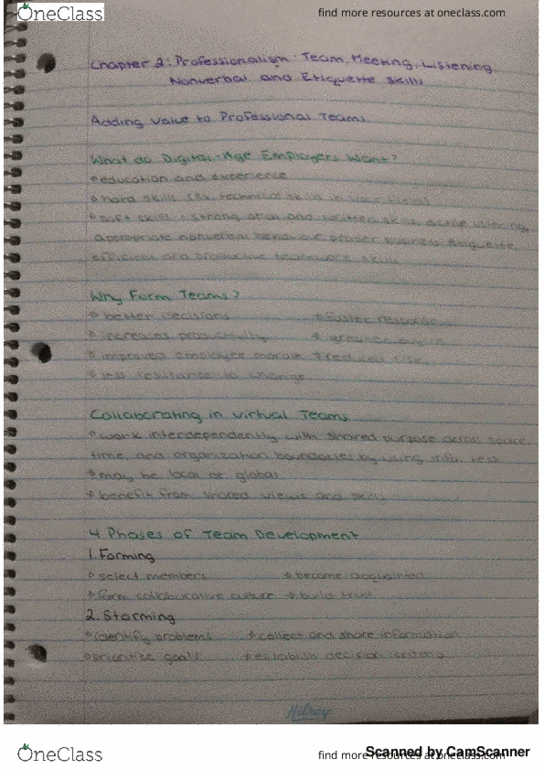 OneClass
find more resources at oneclass.com
Chapter 2: Professionalism: Team, Meeting, Listening,
Nonverbal and Etiquette Skills
Adding Value to Professional Teams
What do Digital-Age Employers Want?
education and experience
hard skills technical skills in your field
soft skills strong oral and written skills, active listening,
appropriate nonverbal behaviour, proper business etiquette,
efficient and productive teamwork skills
Why Form Teams?
better decisions
faster response
increases productivity
greater
improved employee morale
reduced risk
less resistance to change
Collaborating in Virtual Teams
work interdependently with shared purpose across space,
time, and organization boundaries by using info. tech
may be local or global
benefit from shared views and skills
4 Phases of Team Development
1. Forming
select members
become acquainted
form collaborative culture
build trust
2. Storming
identify problems
collect and share information
prioritize goals
establish decision criteria
Hilroy
OneClass
find more resources at oneclass.com
Scanned by CamScanner